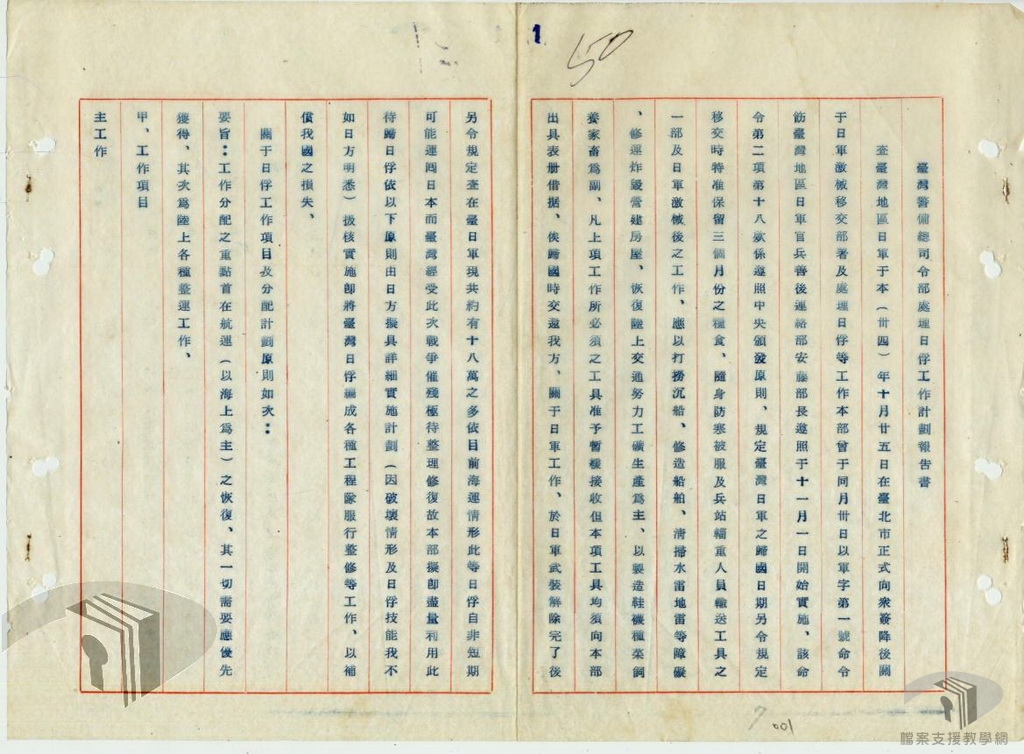 1
50
臺灣警備總司令部處理日俘工作計劃報告書
查臺灣地區日軍于本(卅四)年十月廿五日在臺北市正式向衆簽降後關
于日軍激械移交部署及處理日俘等工作本部曾于同月卅日以軍字第一號命令
飭臺灣地區日軍官兵善後連絡部安藤部長遵照于十一月一日開始實施、該命
令第二項第十八欵係遵照中央頒發原則、規定臺灣日軍之歸國日期另令規定
移交時特准保留三個月份之糧食、隨身防寒被服及兵站輜重人員輸送工具之
一部及日軍激械後之工作、應以打撈沉船、修造船舶、清掃水雷地雷等障礙
、修理炸毀營建房屋、恢復陸上交通努力工礦生產爲主、以製造鞋襪種菜飼
養家畜爲副、凡上項工作所必須之工具准予暫緩接收但本項工具均須向本部
出具表册借据、俟歸國時交還我方、關于日軍工作、於日軍武裝解除完了後
另令規定查在臺日軍現共約有十八萬之多依目前海運情形此等日俘自非短期
可能運囘日本而臺灣經受此次戰爭催殘極待整理修復故本部擬卽盡量利用此
待歸日俘依以下原則由日方擬具詳細實施計劃(因破壞情形及日俘技能我不
如日方明悉)拔核實施卽將臺灣日俘編成各種工程隊服行整修等工作、以補
償我國之損失、
關于日俘工作項目及分配計劃原則如次：
要旨：工作分配之重點首在航運(以海上爲主)之恢復、其一切需要應優先
獲得、其次爲陸上各種整運工作、
甲、工作項目
主工作
7
001
檔案支援教學網